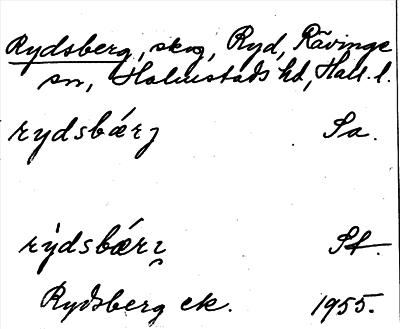 Rydsberg, skog, Ryd, Rävinge
sn, Halmstads hd, Hall. l.
rydsbǽrj Sa.
rýdsbærɪ St.
Rydsberg ek. 1955.